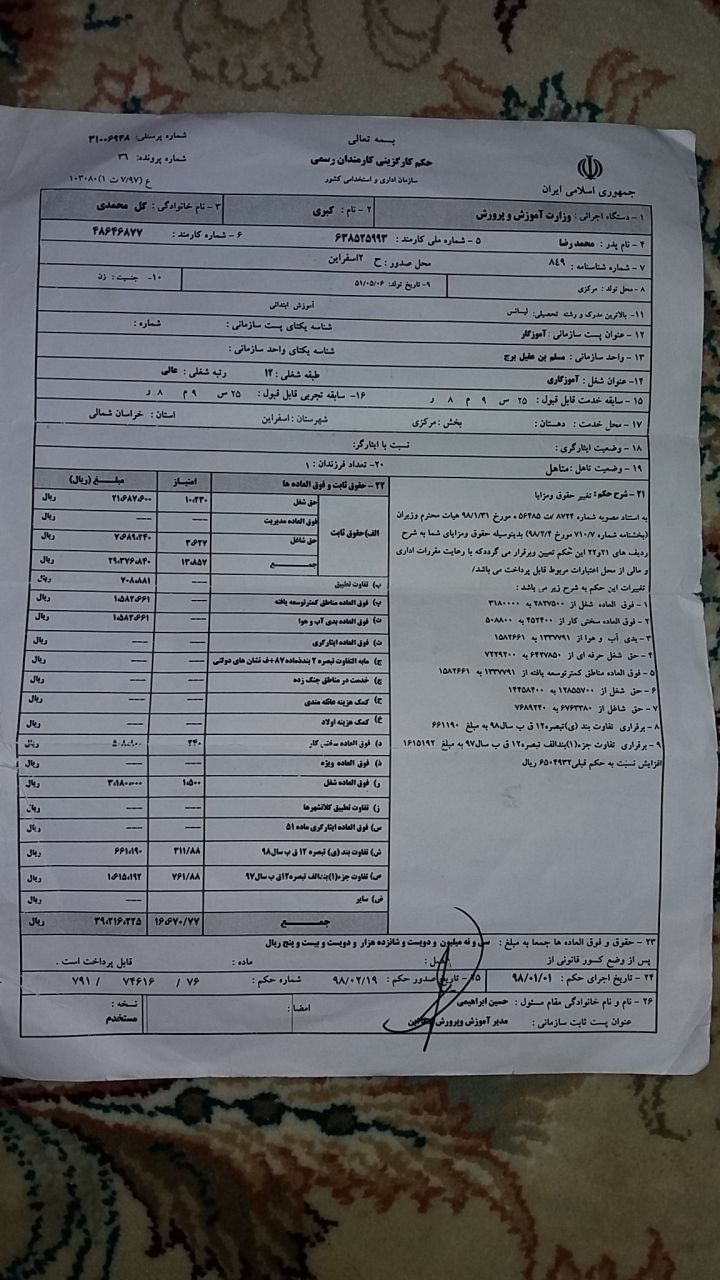 بسمه تعالی
شماره پرسنلی: ۳۱۰۰۶۹۴۸
حکم کارگزینی کارمندان رسمی
شماره پرونده: ۳۶
سازمان اداری و استخدامی کشور
ع (۷/۹۷ ت ۱) ۱۰۳۰۸۰
جمهوری اسلامی ایران
۱- دستگاه اجرائی: وزارت آموزش و پرورش
۲- نام: کبری
۳- نام خانوادگی: گل محمدی
۴- نام پدر: محمدرضا
۵- شماره ملی کارمند: ۶۳۸۵۲۵۹۹۳
۶- شماره کارمند: ۴۸۶۴۶۸۷۷
۷- شماره شناسنامه: ۸۴۹
محل صدور: ح ۲اسفراین
۸- محل تولد: مرکزی
۹- تاریخ تولد: ۵۱/۰۵/۰۶
۱۰- جنسیت: زن
۱۱- بالاترین مدرک و رشته تحصیلی: لیسانس
آموزش ابتدائی
۱۲- عنوان پست سازمانی: آموزگار
شناسه یکتای پست سازمانی:
شماره:
۱۳- واحد سازمانی: مسلم بن عقیل برج
شناسه یکتای واحد سازمانی:
۱۴- عنوان شغل: آموزگاری
طبقه شغلی: ۱۲
رتبه شغلی: عالی
۱۵- سابقه خدمت قابل قبول: ۲۵ س ۹ م ۸ ر
۱۶- سابقه تجربی قابل قبول: ۲۵ س ۹ م ۸ ر
۱۷- محل خدمت: دهستان:
بخش: مرکزی
شهرستان: اسفراین
استان: خراسان شمالی
۱۸- وضعیت ایثارگری:
نسبت با ایثارگر:
۱۹- وضعیت تاهل: متاهل
۲۰- تعداد فرزندان: ۱
۲۱- شرح حکم: تغییر حقوق ومزایا
به استناد مصوبه شماره ۸۷۲۴/ت ۵۶۴۸۵ ه مورخ ۹۸/۱/۳۱ هیات محترم وزیران
(بخشنامه شماره ۷۱۰/۷ مورخ ۹۸/۲/۴) بدینوسیله حقوق ومزایای شما به شرح
ردیف های ۲۱و۲۲ این حکم تعیین وبرقرار می گرددکه با رعایت مقررات اداری
و مالی از محل اعتبارات مربوط قابل پرداخت می باشد/
تغییرات این حکم به شرح زیر می باشد:
۱- فوق العاده شغل از ۲۸۲۷۵۰۰ به ۳۱۸۰۰۰۰
۲- فوق العاده سختی کار از ۴۵۲۴۰۰ به ۵۰۸۸۰۰
۳- بدی آب و هوا از ۱۳۳۷۷۹۱ به ۱۵۸۲۶۶۱
۴- حق شغل حرفه ای از ۶۴۲۷۸۵۰ به ۷۲۲۹۲۰۰
۵- فوق العاده مناطق کمترتوسعه یافته از ۱۳۳۷۷۹۱ به ۱۵۸۲۶۶۱
۶- حق شغل از ۱۲۸۵۵۷۰۰ به ۱۴۴۵۸۴۰۰
۷- حق شاغل از ۶۷۶۳۳۸۰ به ۷۶۸۹۲۴۰
۸- برقراری تفاوت بند (ی)تبصره۱۲ ق ب سال۹۸ به مبلغ ۶۶۱۱۹۰
۹- برقراری تفاوت جزء(۱)بندالف تبصره۱۲ ق ب سال۹۷ به مبلغ ۱۶۱۵۱۹۲
افزایش نسبت به حکم قبلی۶۵۰۴۹۳۲ ریال
۲۲- حقوق ثابت و فوق العاده ها امتیاز مبلـــغ (ریال)
الف)حقوق ثابت
حق شغل ۱۰،۲۳۰ ۲۱،۶۸۷،۶۰۰ ریال
فوق العاده مدیریت ---- ---- ریال
حق شاغل ۳،۶۲۷ ۷،۶۸۹،۲۴۰ ریال
جمـــع ۱۳،۸۵۷ ۲۹،۳۷۶،۸۴۰ ریال
ب) تفاوت تطبیق ---- ۷۰۸،۸۸۱ ریال
پ) فوق العاده مناطق کمترتوسعه یافته ---- ۱،۵۸۲،۶۶۱ ریال
ت) فوق العاده بدی آب و هوا ---- ۱،۵۸۲،۶۶۱ ریال
ث) فوق العاده ایثارگری ---- ---- ریال
ج) مابه التفاوت تبصره ۲ بندذماده ۸۷+ف نشان های دولتی ---- ---- ریال
چ) خدمت در مناطق جنگ زده ---- ---- ریال
ح) کمک هزینه عائله مندی ---- ---- ریال
خ) کمک هزینه اولاد ---- ---- ریال
د) فوق العاده سختی کار ۲۴۰ ۵۰۸،۸۰۰ ریال
ذ) فوق العاده ویژه ---- ---- ریال
ر) فوق العاده شغل ۱،۵۰۰ ۳،۱۸۰،۰۰۰ ریال
ز) تفاوت تطبیق کلانشهرها ---- ---- ریال
س) فوق العاده ایثارگری ماده ۵۱ ---- ---- ریال
ش) تفاوت بند (ی) تبصره ۱۲ ق ب سال۹۸ ۳۱۱/۸۸ ۶۶۱،۱۹۰ ریال
ص) تفاوت جزء(۱)بندالف تبصره۱۲ق ب سال۹۷ ۷۶۱/۸۸ ۱،۶۱۵،۱۹۲ ریال
ض) سایر
جمـــــع ۱۶،۶۷۰/۷۷ ۳۹،۲۱۶،۲۲۵ ریال
۲۳- حقوق و فوق العاده ها جمعا به مبلغ: سی و نه میلیون و دویست و شانزده هزار و دویست و بیست و پنج ریال
پس از وضع کسور قانونی از
ماده:
قابل پرداخت است.
۲۴- تاریخ اجرای حکم: ۹۸/۰۱/۰۱
۲۵- تاریخ صدور حکم: ۹۸/۰۲/۱۹
شماره حکم: ۷۶ / ۷۴۶۱۶ / ۷۹۱
۲۶- نام و نام خانوادگی مقام مسئول: حسین ابراهیمی
امضا:
نسخه:
عنوان پست ثابت سازمانی: مدیر آموزش وپرورش
مستخدم